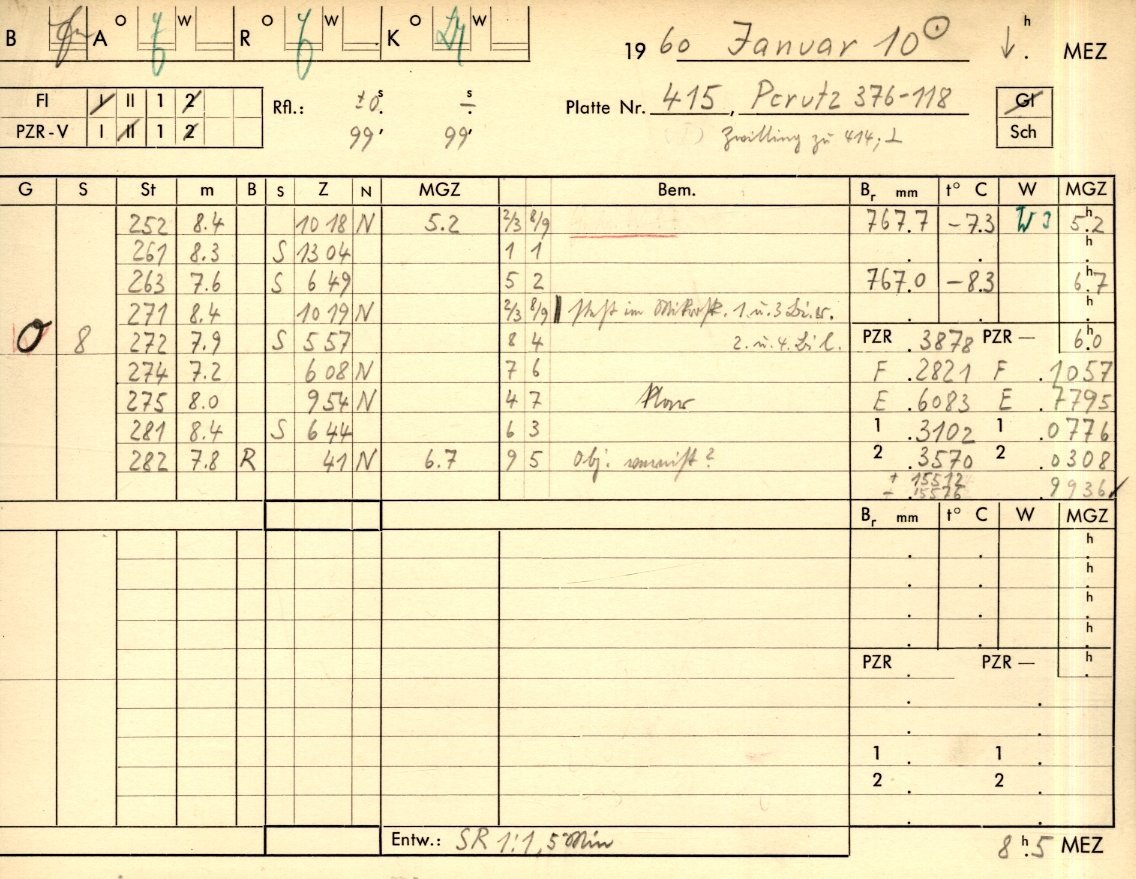 B A O W R O W K O W 19 60 Januar 10 ⊙ h ↓ . MEZ
FI I II 1 2 Rfl.: ±0 s. s Platte Nr. 415, Perutz 376-118 Gl
PZR-V I II 1 2 99' 99' Zwilling zu 414, I Sch
G S St m B S Z N MGZ Bem. Br mm t° C W MGZ
252 8.4 10 18 N 5.2 2/3 8/9 767.7 -7.3 W 3 5h.2
261 8.3 S 13 04 1 1 h
263 7.6 S 6 49 5 2 767.0 -8.3 6h.7
271 8.4 10 19 N 2/3 8/9 steht im Mikrosk. 1. u. 3 h
0 8 272 7.9 S 5 57 8 4 2. u. 4. PZR .3878 PZR — 6h.0
274 7.2 6 08 N 7 6 F .2821 F .1057
275 8.0 9 54 N 4 7 klar E .6083 E .7795
281 8.4 S 6 44 6 3 1 .3102 1 .0776
282 7.8 B R 41 N 6.7 9 5 Obj. vereist? 2 .3570 2 .0308
+ .15512
- .15576 .9936
Br mm t° C W MGZ
h
h
h
h
PZR . PZR — h
1 . 1 .
2 . 2 .
Entw.: SR 1:1, 5 Min 8h.5 MEZ